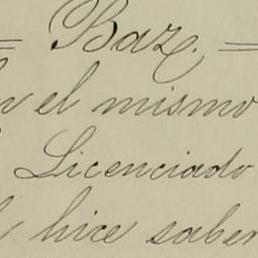 = Baz. =
n el mismo
Licenciado
hice saber